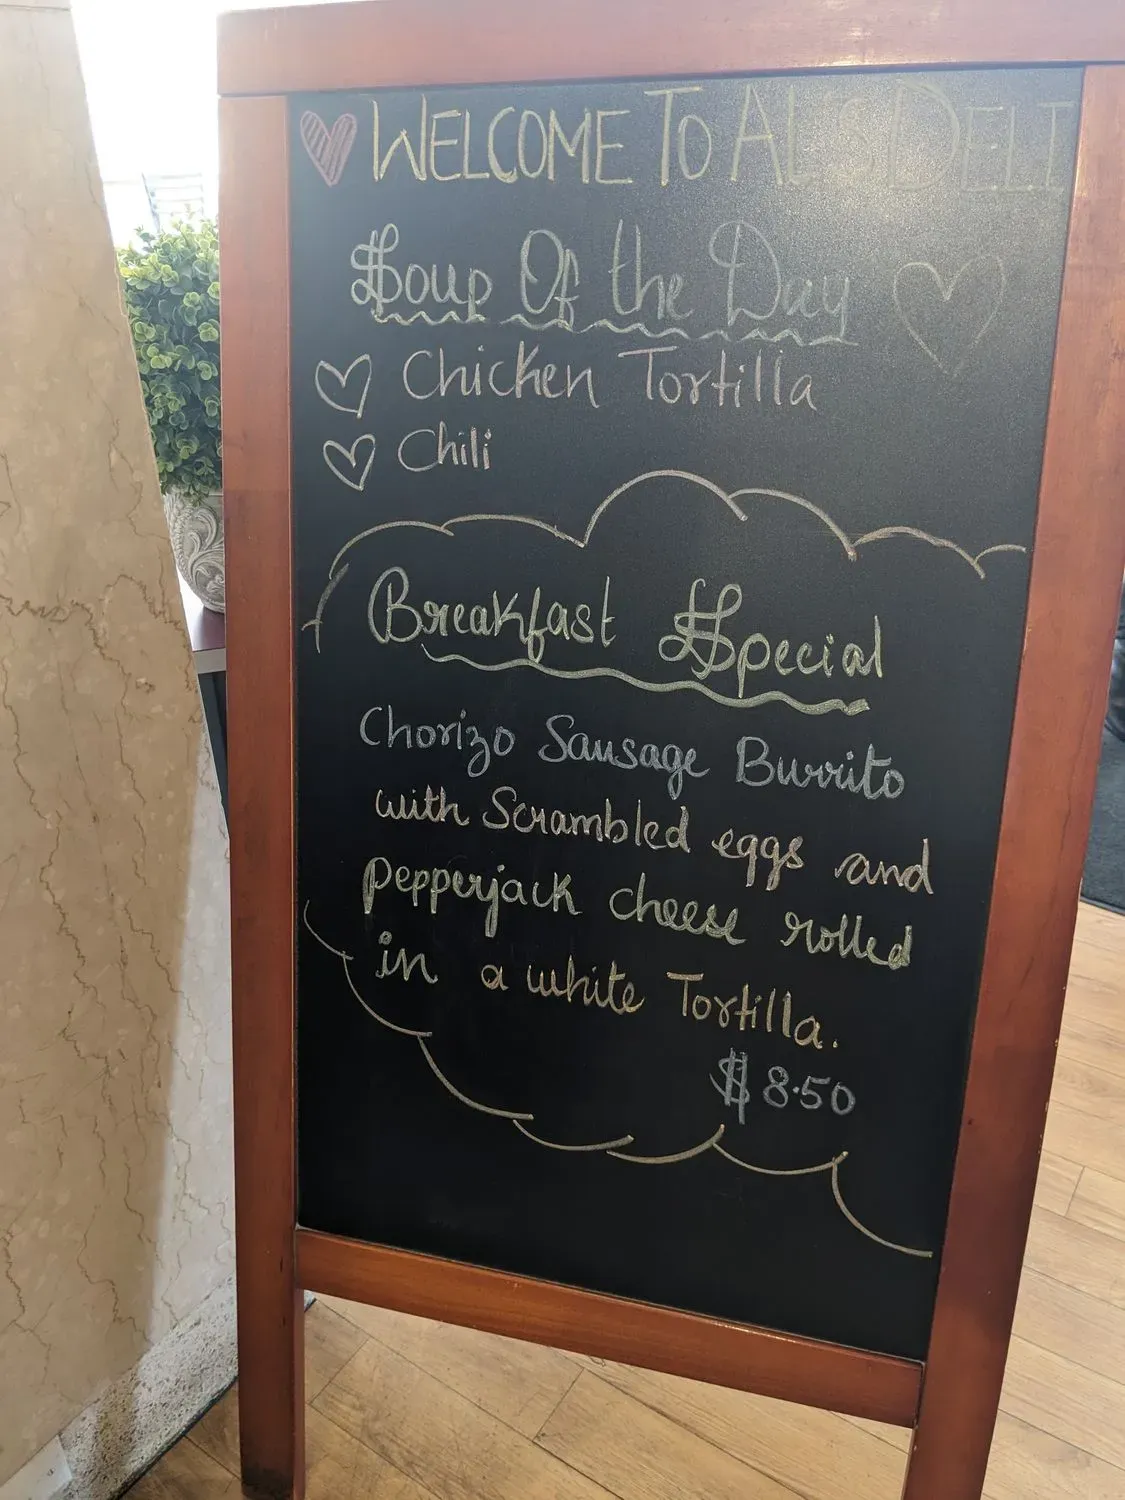 WELCOME TO AL'S DELI
Soup Of the Day
Chicken Tortilla
Chili
Breakfast Special
Chorizo Sausage Burrito
with Scrambled eggs and
pepperjack cheese rolled
in a white Tortilla.
$8.50